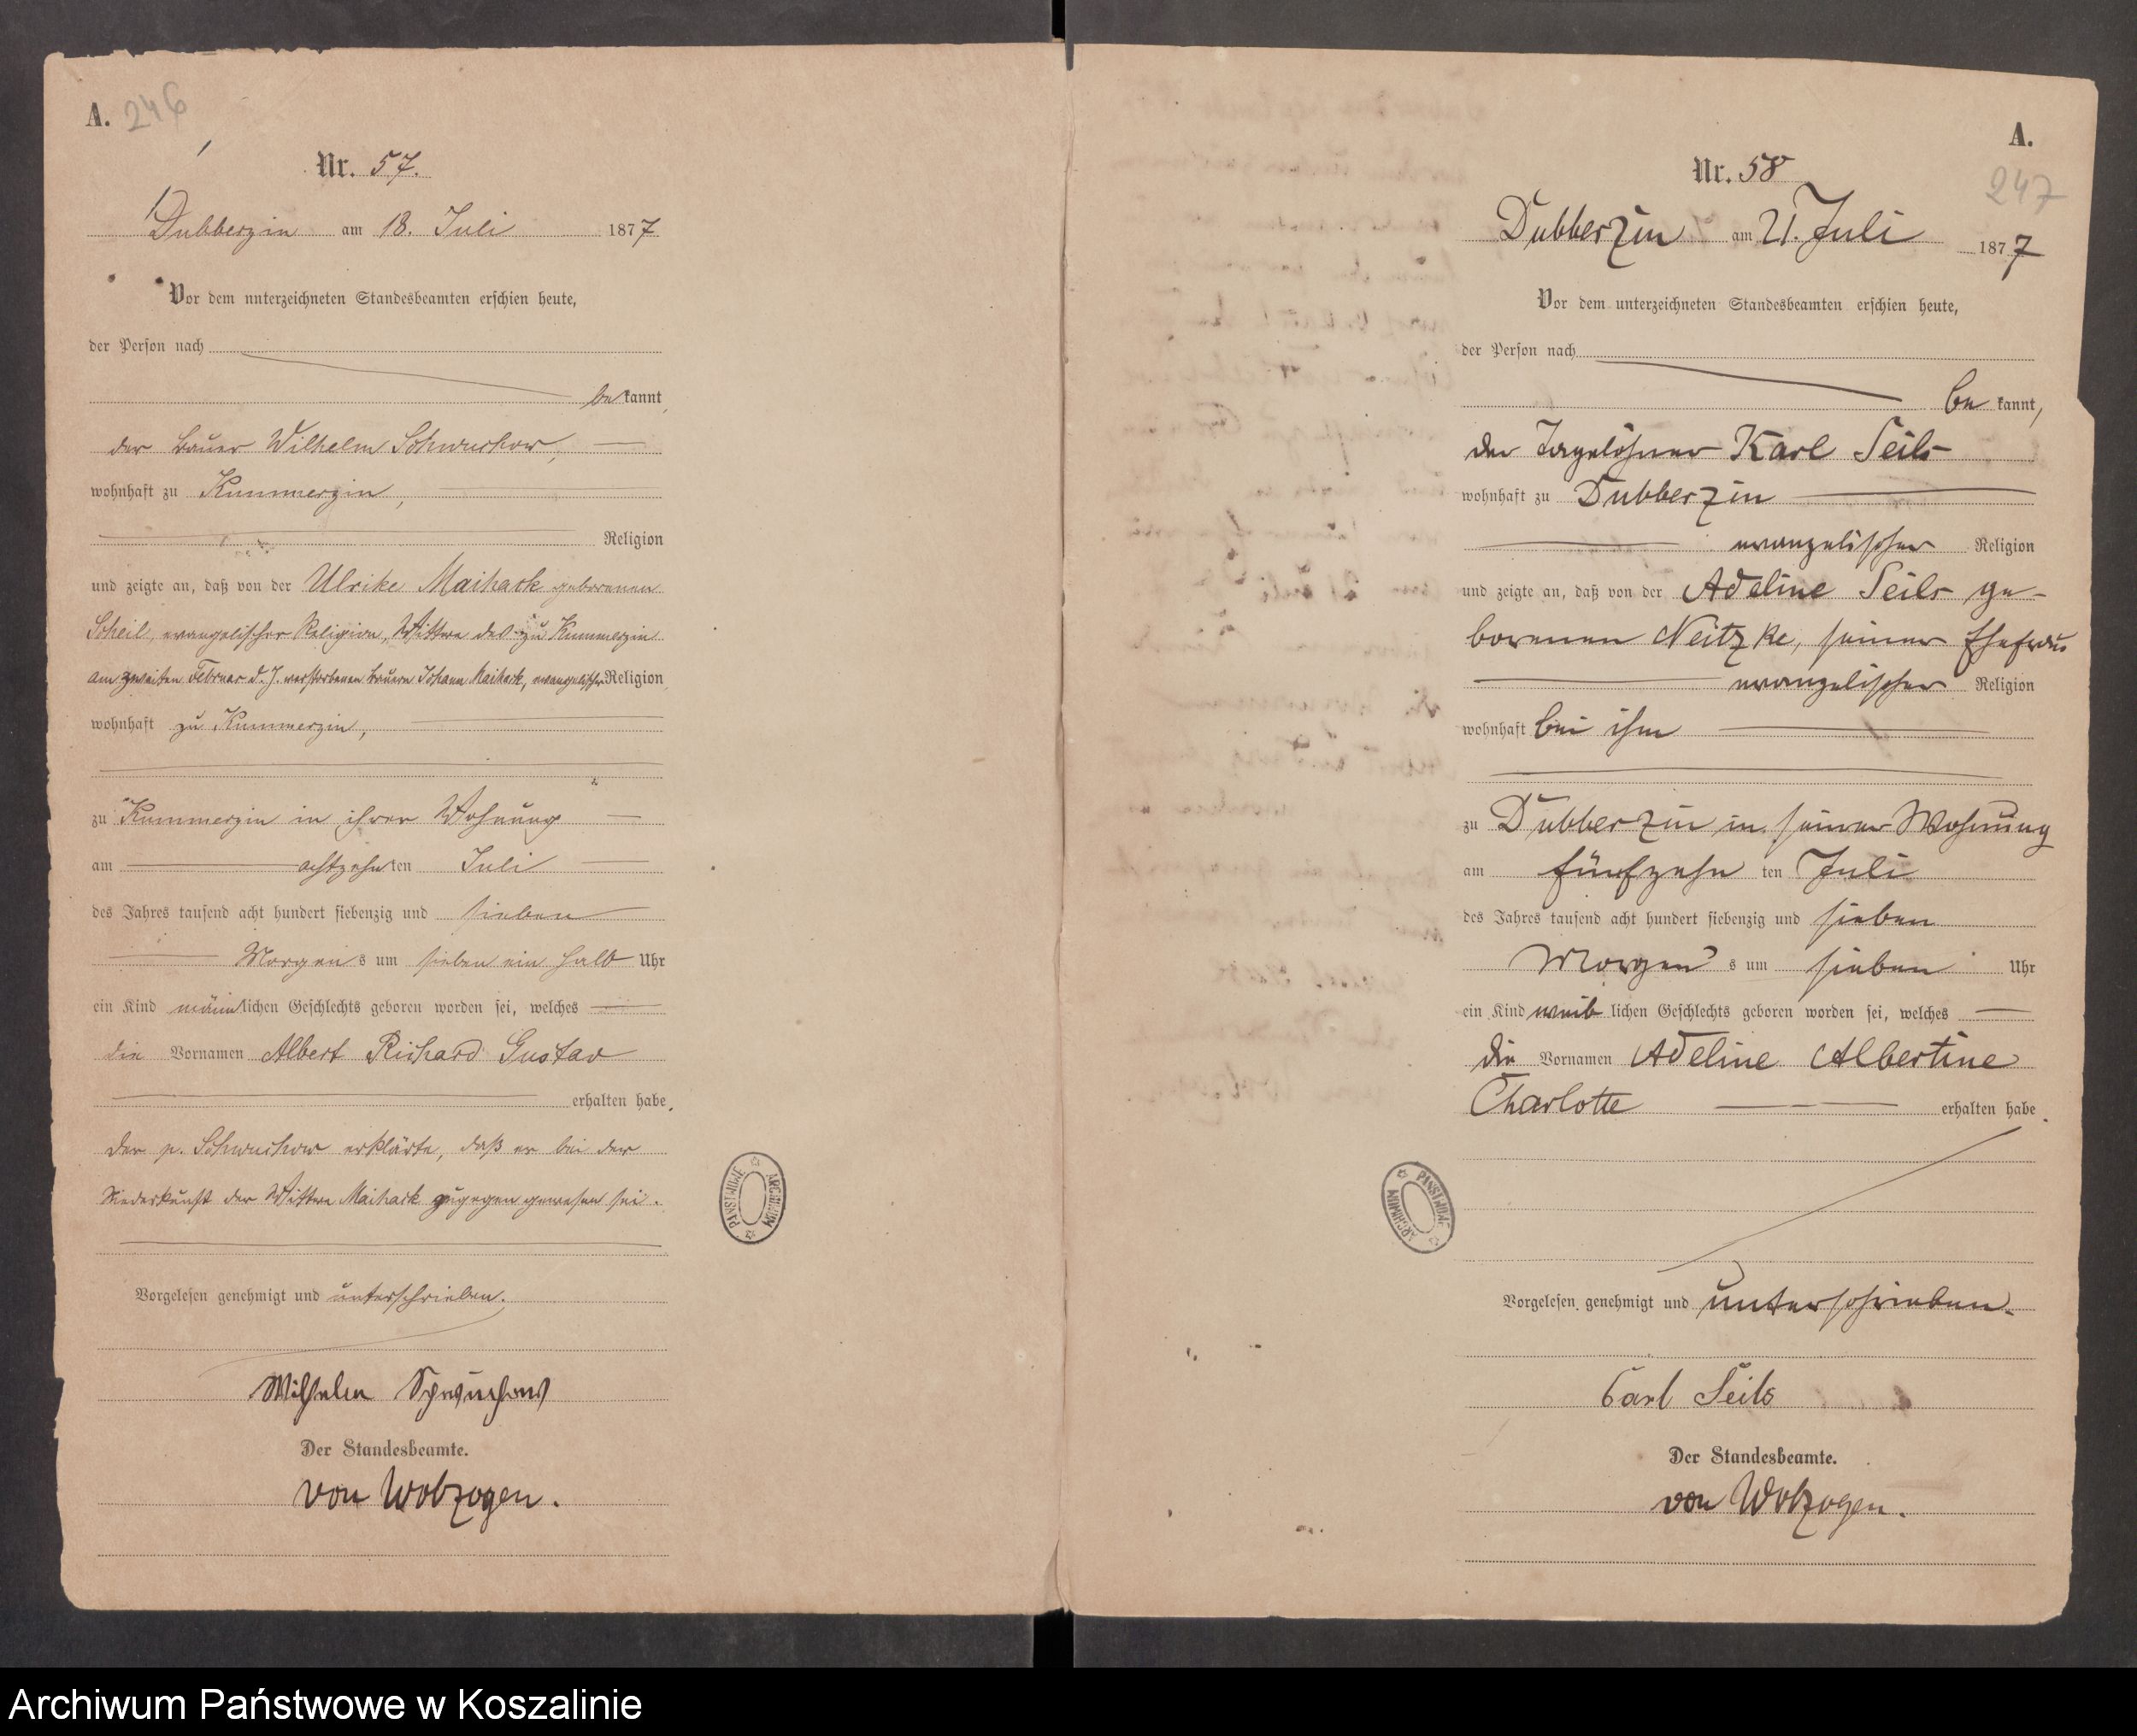 A. 246
Nr. 57.
Dubberzin am 18. Juli 1877
Vor dem unterzeichneten Standesbeamten erschien heute,
der Person nach
bekannt,
der Bauer Wilhelm Schwuchow,
wohnhaft zu Kummerzin,
Religion
und zeigte an, daß von der Ulrike Maihack geborenen
Scheil, evangelischer Religion, Wittwe des zu Kummerzin
am zweiten Februar d. J. verstorbenen Bauern Johann Maihack, evangelischer Religion,
wohnhaft zu Kummerzin,
zu Kummerzin in ihrer Wohnung
am achtzehnten Juli
des Jahres tausend acht hundert siebenzig und sieben
Morgens um sieben ein halb Uhr
ein Kind männlichen Geschlechts geboren worden sei, welches
die Vornamen Albert Richard Gustav
erhalten habe.
Der p. Schwuchow erklärte, daß er bei der
Niederkunft der Wittwe Maihack zugegen gewesen sei.
Vorgelesen genehmigt und unterschrieben.
Wilhelm Schwuchow
Der Standesbeamte.
von Wolzogen.
ARCHIWUM PAŃSTWOWE
A.
247
Nr. 58
Dubberzin am 21. Juli 1877
Vor dem unterzeichneten Standesbeamten erschien heute,
der Person nach
bekannt,
der Tagelöhner Karl Seils
wohnhaft zu Dubberzin
evangelischer Religion
und zeigte an, daß von der Adeline Seils ge-
borenen Neitzke, seiner Ehefrau
evangelischer Religion
wohnhaft bei ihm
zu Dubberzin in seiner Wohnung
am fünfzehnten Juli
des Jahres tausend acht hundert siebenzig und sieben
Morgens um sieben Uhr
ein Kind weiblichen Geschlechts geboren worden sei, welches
die Vornamen Adeline Albertine
Charlotte erhalten habe.
ARCHIWUM PAŃSTWOWE
Vorgelesen, genehmigt und unterschrieben.
Carl Seils
Der Standesbeamte.
von Wolzogen.
Archiwum Państwowe w Koszalinie